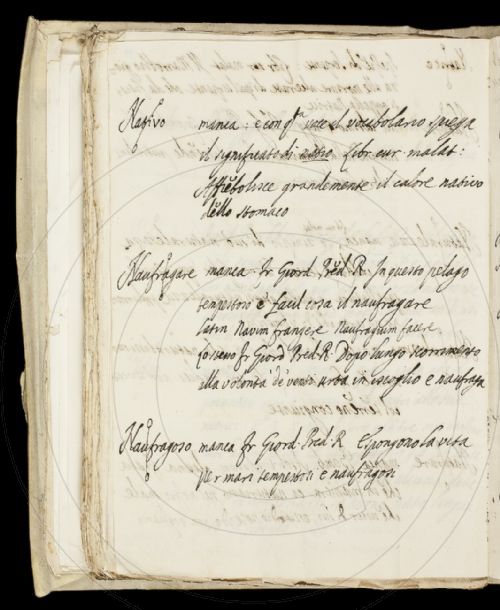 Nativo manca: e con q.ta voce il vocabolario spiega
il significato di natio Libr cur malat:
Affiebolisce grandemente il calore nativo
dello stomaco
Naufragare manca Fr Giord Pred R. In questo pelago
tempestoso è facil cosa il naufragare
latin Navim frangere Naufragium facere
Lo stesso Fr Giord Pred. R. Dopo lungo scorrimento
alla volontà de venti urta in iscoglio e naufraga
Naufragoso manca Fr Giord. Pred. R Espongono la vita
per mari tempestosi e naufragosi